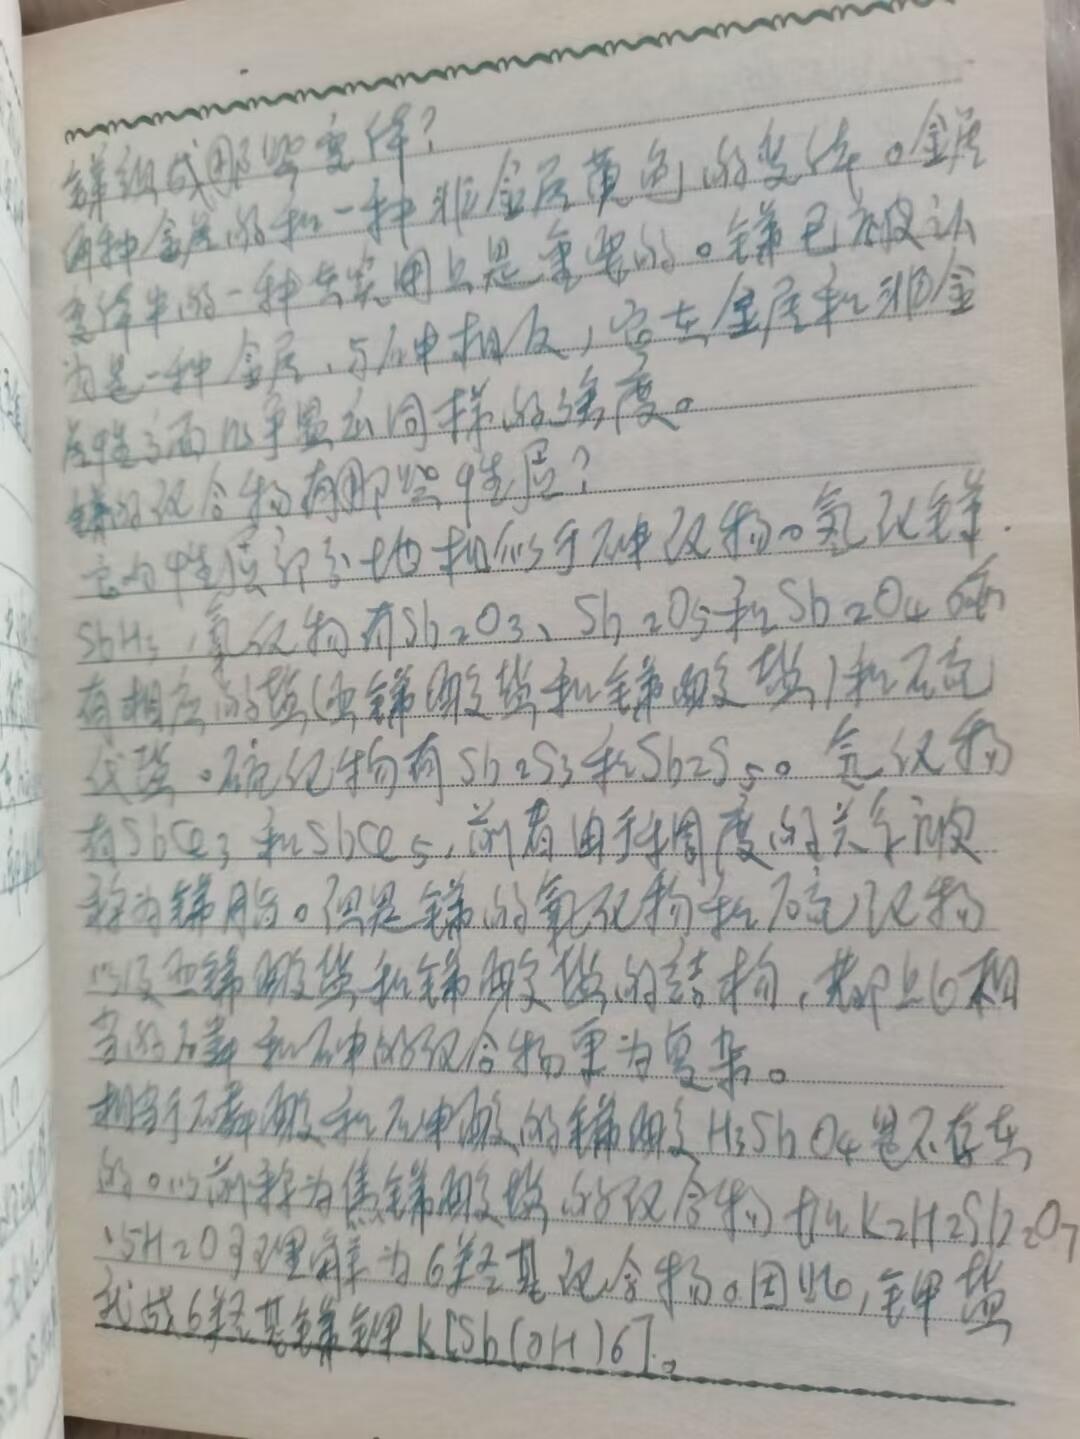 锑组成那些变体?
两种金属的和一种非金属黄色的变体。金属
变体中的一种在实用上是重要的。锑已被认
为是一种金属,与砷相反,它在金属和非金
属性方面几乎显示同样的强度。
锑的化合物有那些性质?
它的性质部分地相似于砷化物。氢化锑
SbH3,氧化物有Sb2O3、Sb2O5和Sb2O4
有相应的盐(亚锑酸盐和锑酸盐)和硫
代盐。硫化物有Sb2S3和Sb2S5。氯化物
有SbCl3和SbCl5,前者由于稠度的关系被
称为锑脂。但是锑的氧化物和硫化物
以及亚锑酸盐和锑酸盐的结构,都比相
当的磷和砷的化合物更为复杂。
相当于磷酸和砷酸的锑酸H3SbO4是不存在
的。以前称为焦锑酸盐的化合物如K2H2Sb2O7
·5H2O可理解为6羟基化合物。因此,钾盐
成6羟基锑钾K[Sb(OH)6]。